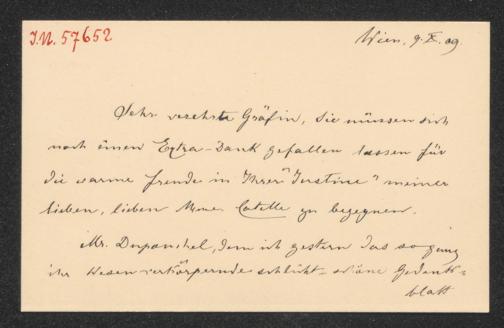 I.N. 57652
Wien, 9. X. 09.
Sehr verehrte Gräfin, Sie müssen sich
noch einen Extra-Dank gefallen lassen für
die warme Freude in Ihrer "Justine" meiner
lieben, lieben Mme. Catelle zu begegnen.
Mr. Dupontel, dem ich gestern das so ganz
ihr Wesen verkörpernde schlicht-schöne Gedenk=
blatt